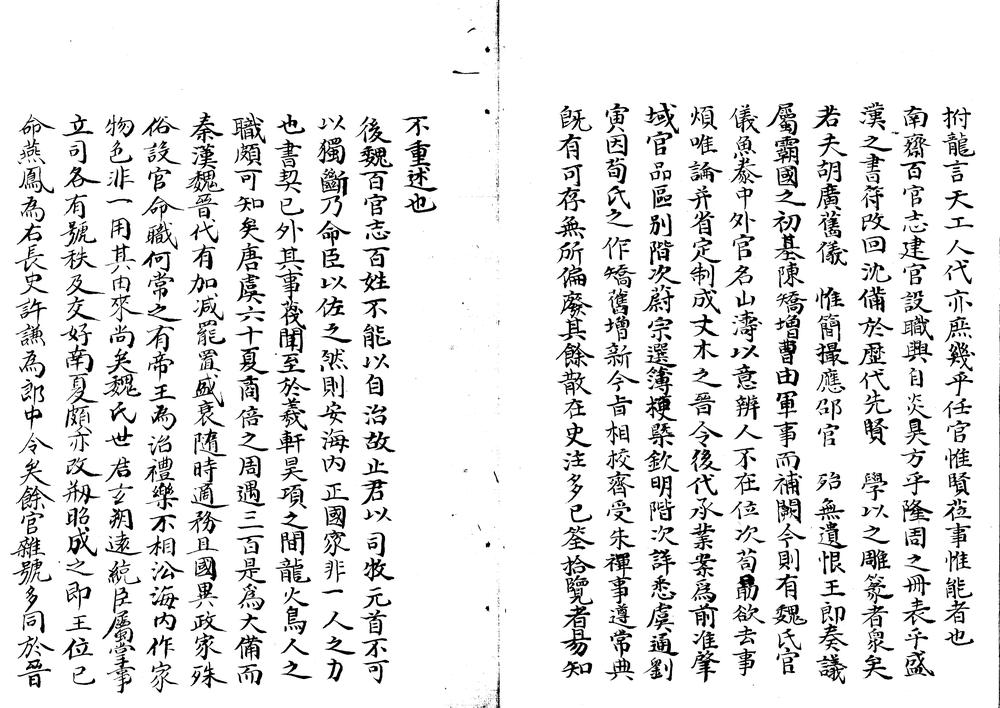 拊龍言天工人代亦庶幾乎任官惟賢莅事惟能者也
南齋百官志建官設職興自炎昊方乎隆周之冊表乎盛
漢之書符改回沈備於歷代先賢 學以之雕篆者衆矣
若夫胡廣舊儀 惟簡撮應邵官 殆無遺恨王郎奏議
屬霸國之初基陳矯增曹由軍事而補闕今則有魏氏官
儀魚豢中外官名山濤以意辨人不在位次荀勗欲去事
煩唯論并省定制成丈木之晉令後代承業案爲前准肇
域官品區別階次蔚宗選簿梗槩欽明階次詳悉虞通劉
寅因荀氏之作矯舊增新今㫖相校齊受朱禪事遵常典
既有可存無所偏廢其餘散在史注多已筌拾覽者易知
不重述也
後魏百官志百姓不能以自治故止君以司牧元首不可
以獨斷乃命臣以佐之然則安海内正國家非一人之力
也書契已外其事莫聞至於羲軒昊項之間龍火鳥人之
職頗可知矣唐虞六十夏商倍之周過三百是爲大備而
秦漢魏晉代有加减罷置盛衰隨時適務且國異政家殊
俗設官命職何常之有帝王為治禮樂不相沿海内作家
物色非一用其由來尚矣魏氏世君玄朔遠統臣屬掌事
立司各有號秩及交好南夏頗亦改刱昭成之即王位已
命燕鳳為右長史許謙為郎中令矣餘官雜號多同於晉